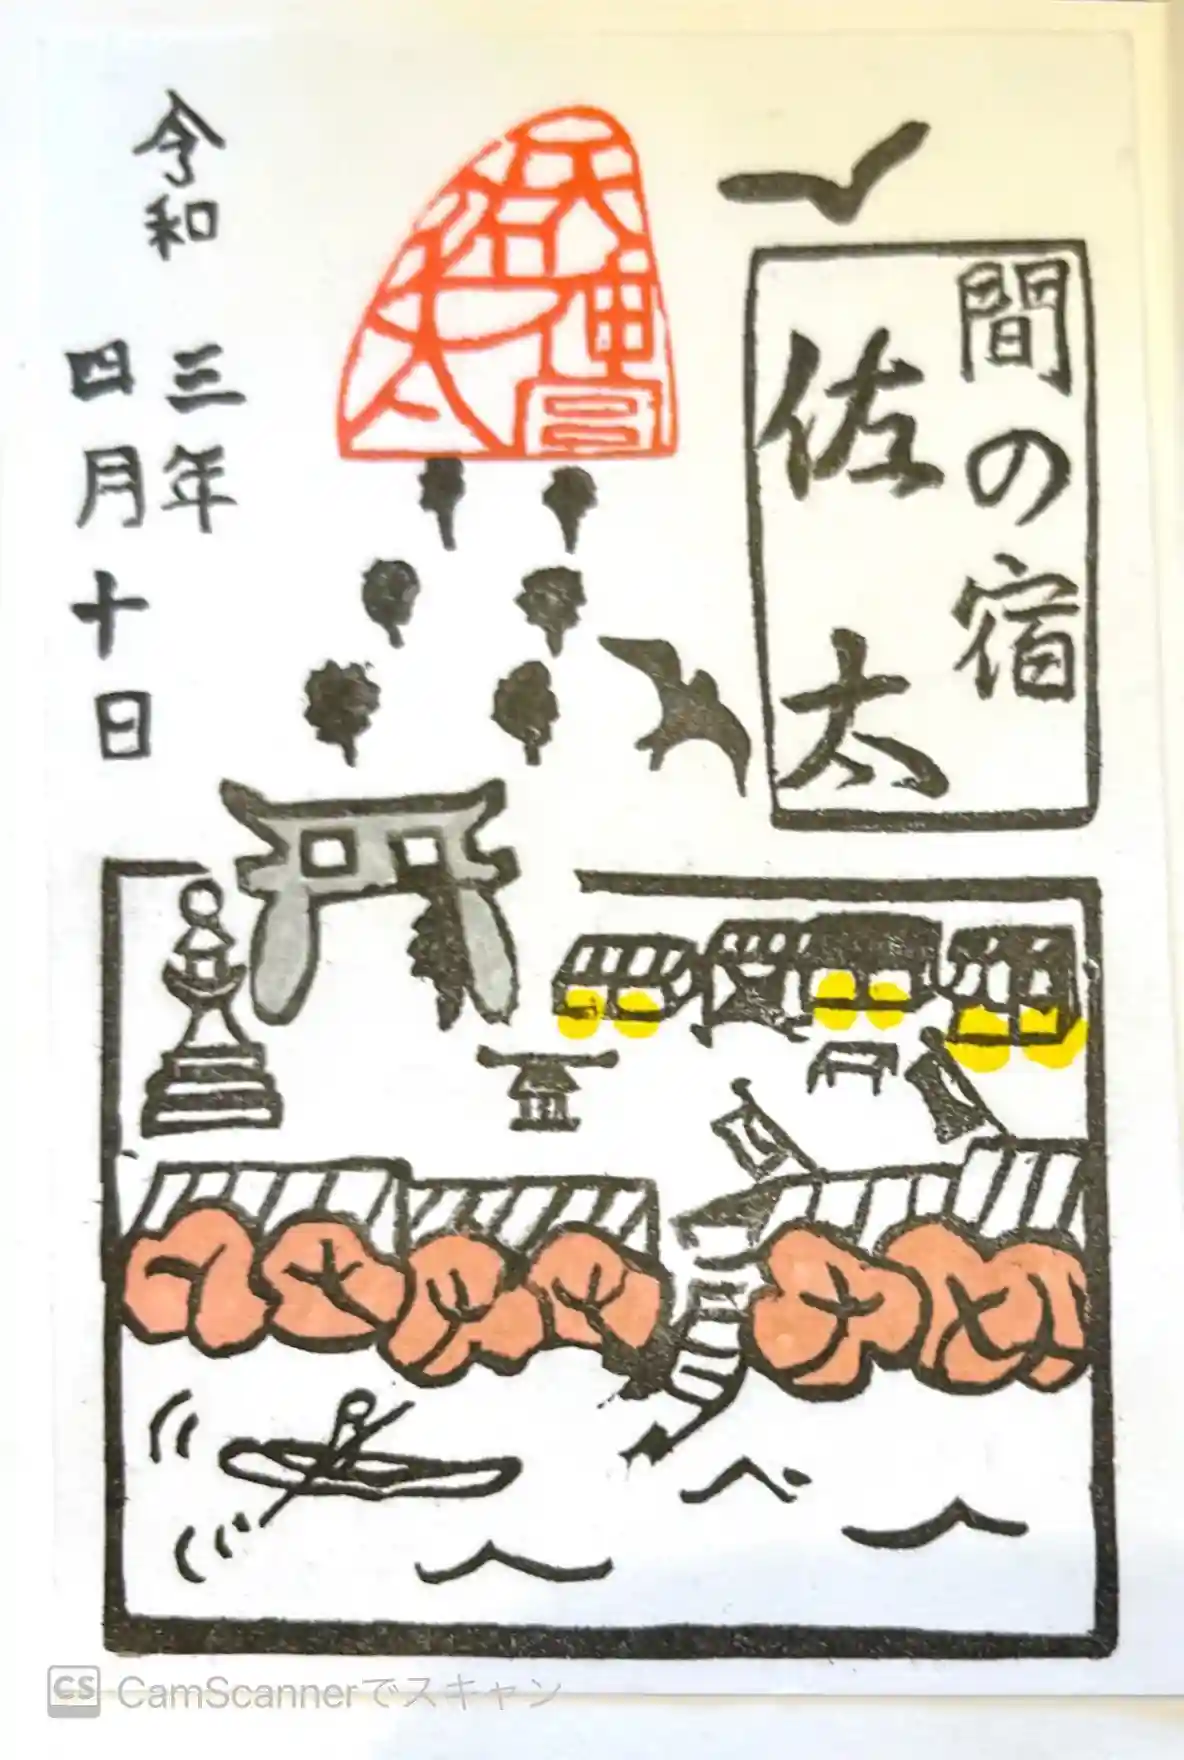 間の宿
佐太
佐太天神宮
令和
三年
四月十日
CS CamScannerでスキャン